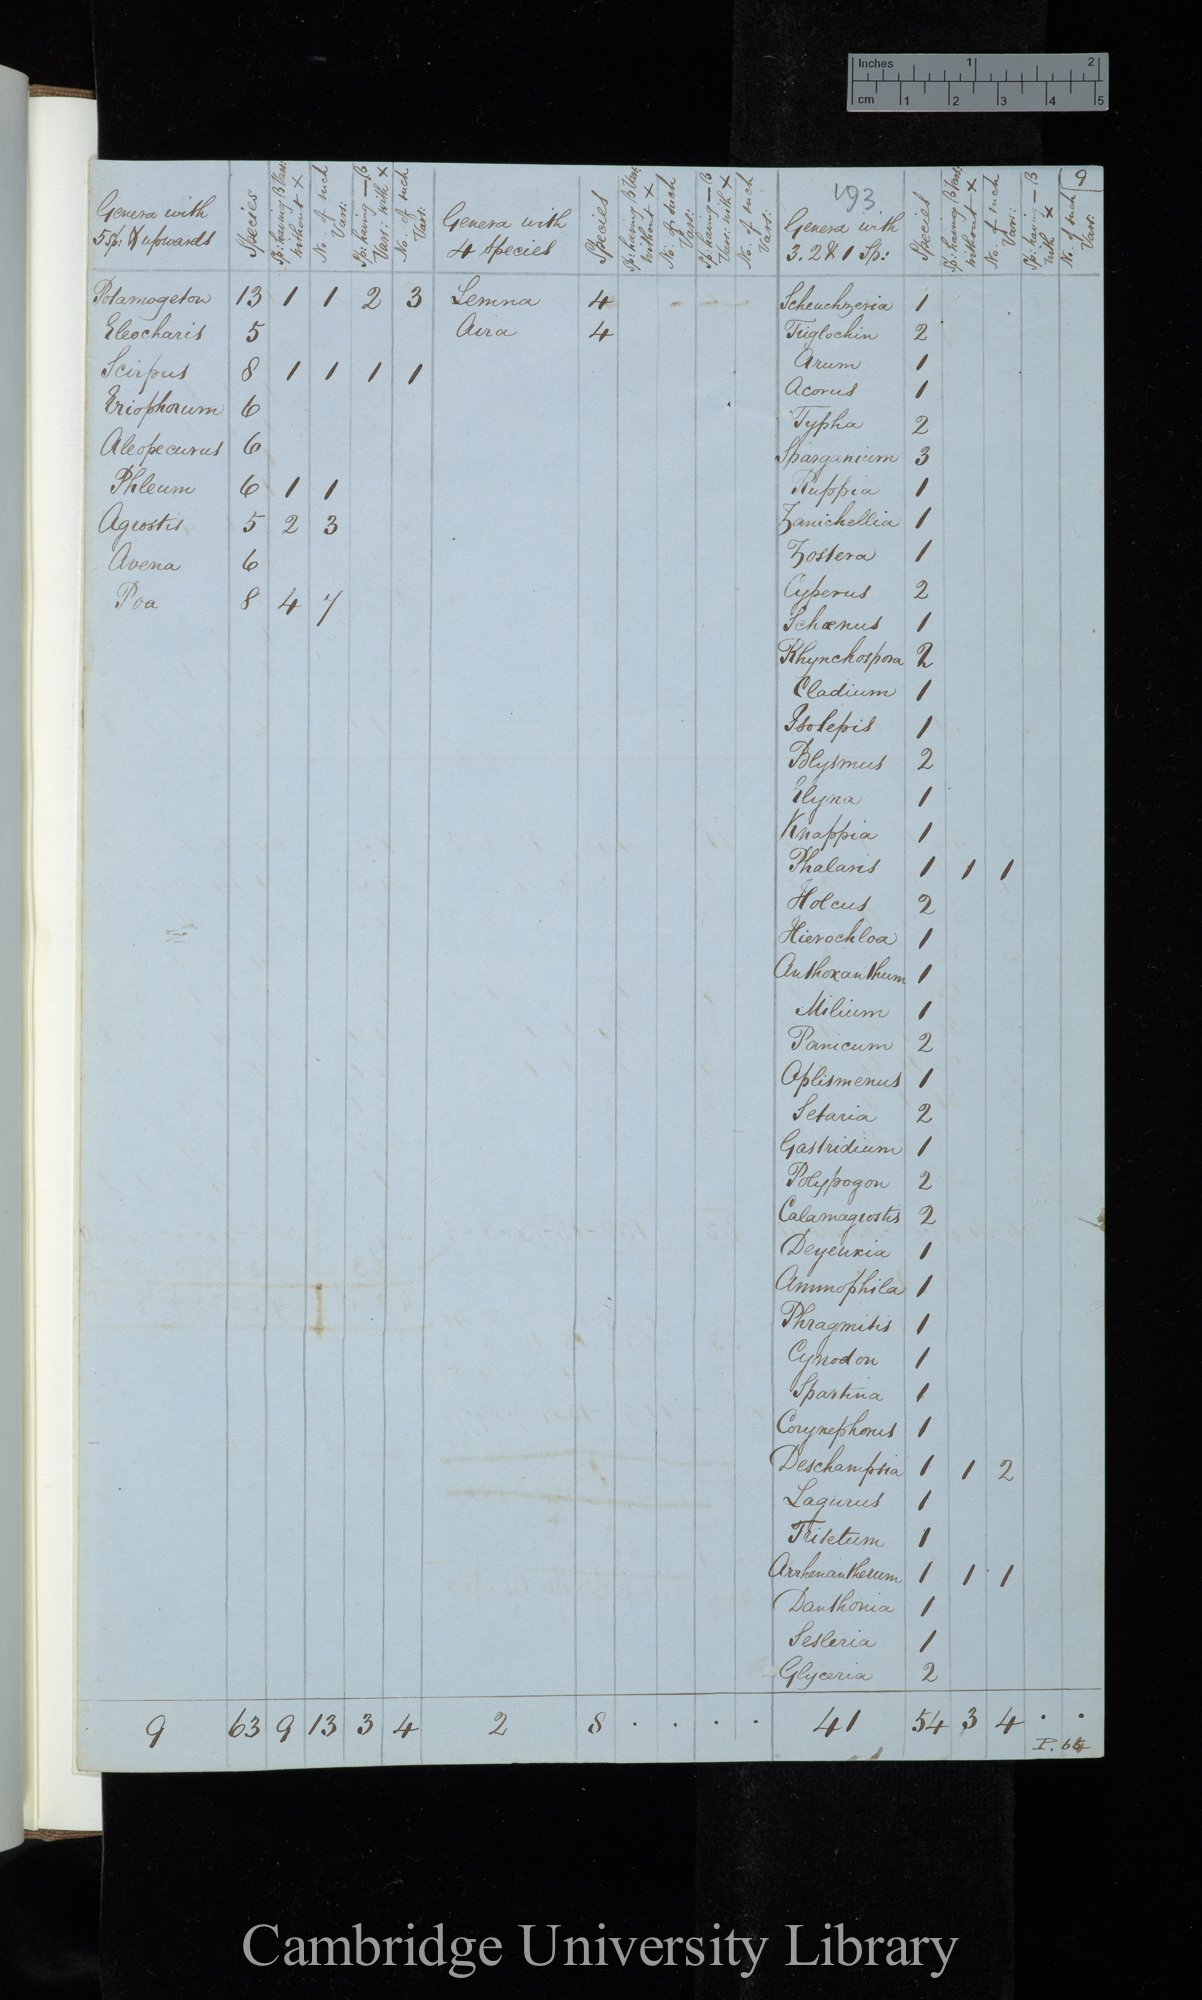 Inches 1 2
cm 1 2 3 4 5
193
9
Genera with
5 Sp: & upwards
Species
Sp: having B Var:
without ×
No. of such
Var:
Sp: having — B
Var: with ×
No. of such
Var:
Genera with
4 Species
Species
Sp: having B Var:
without ×
No. of such
Var:
Sp: having — B
Var: with ×
No. of such
Var:
Genera with
3. 2 & 1 Sp:
Species
Sp: having B Var:
without ×
No. of such
Var:
Sp: having — B
with ×
No. of such
Var:
Potamogeton 13 1 1 2 3
Eleocharis 5
Scirpus 8 1 1 1 1
Eriophorum 6
Aleopecurus 6
Phleum 6 1 1
Agrostis 5 2 3
Avena 6
Poa 8 4 7
Lemna 4 - - -
Aira 4
Scheuchzeria 1
Triglochin 2
Arum 1
Acorus 1
Typha 2
Sparganium 3
Ruppia 1
Zanichellia 1
Zostera 1
Cyperus 2
Schœnus 1
Rhynchospora 2
Cladium 1
Isolepis 1
Blysmus 2
Elyna 1
Knappia 1
Phalaris 1 1 1
Holcus 2
Hierochloa 1
Anthoxanthum 1
Milium 1
Panicum 2
Oplismenus 1
Setaria 2
Gastridium 1
Polypogon 2
Calamagrostis 2
Deyeuxia 1
Ammophila 1
Phragmitis 1
Cynodon 1
Spartina 1
Corynephorus 1
Deschampsia 1 1 2
Lagurus 1
Trisetum 1
Arrhenantherum 1 1 1
Danthonia 1
Sesleria 1
Glyceria 2
9 63 9 13 3 4 2 8 . . . . 41 54 3 4 . .
Cambridge University Library